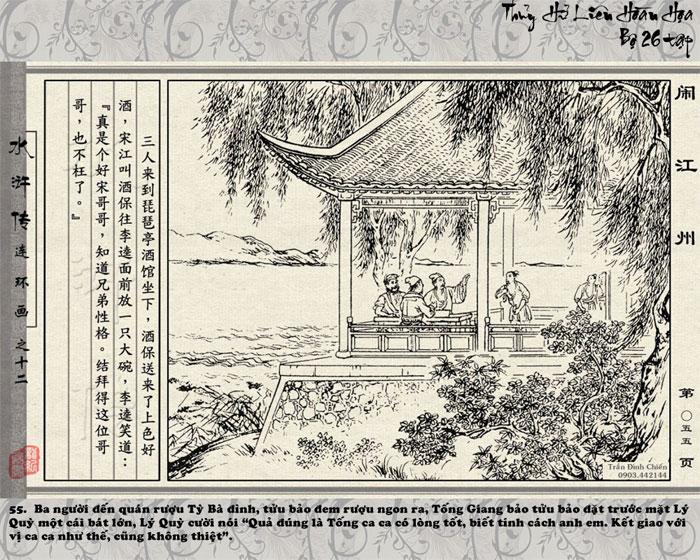 Thủy Hử Liên Hoàn Họa
Bộ 26 tập
闹江州
三人来到琵琶亭酒馆坐下，酒保送来了上色好
酒，宋江叫酒保往李逵面前放一只大碗，李逵笑道
『真是个好宋哥哥，知道兄弟性格。结拜得这位哥
哥，也不枉了。』
水浒传连环画之十二
第〇五五页
Trần Đình Chiến
0903.442144
55. Ba người đến quán rượu Tỳ Bà đình, tửu bảo đem rượu ngon ra, Tống Giang bảo tửu bảo đặt trước mặt Lý
Quỳ một cái bát lớn, Lý Quỳ cười nói “Quả đúng là Tống ca ca có lòng tốt, biết tính cách anh em. Kết giao với
vị ca ca như thế, cũng không thiệt”.